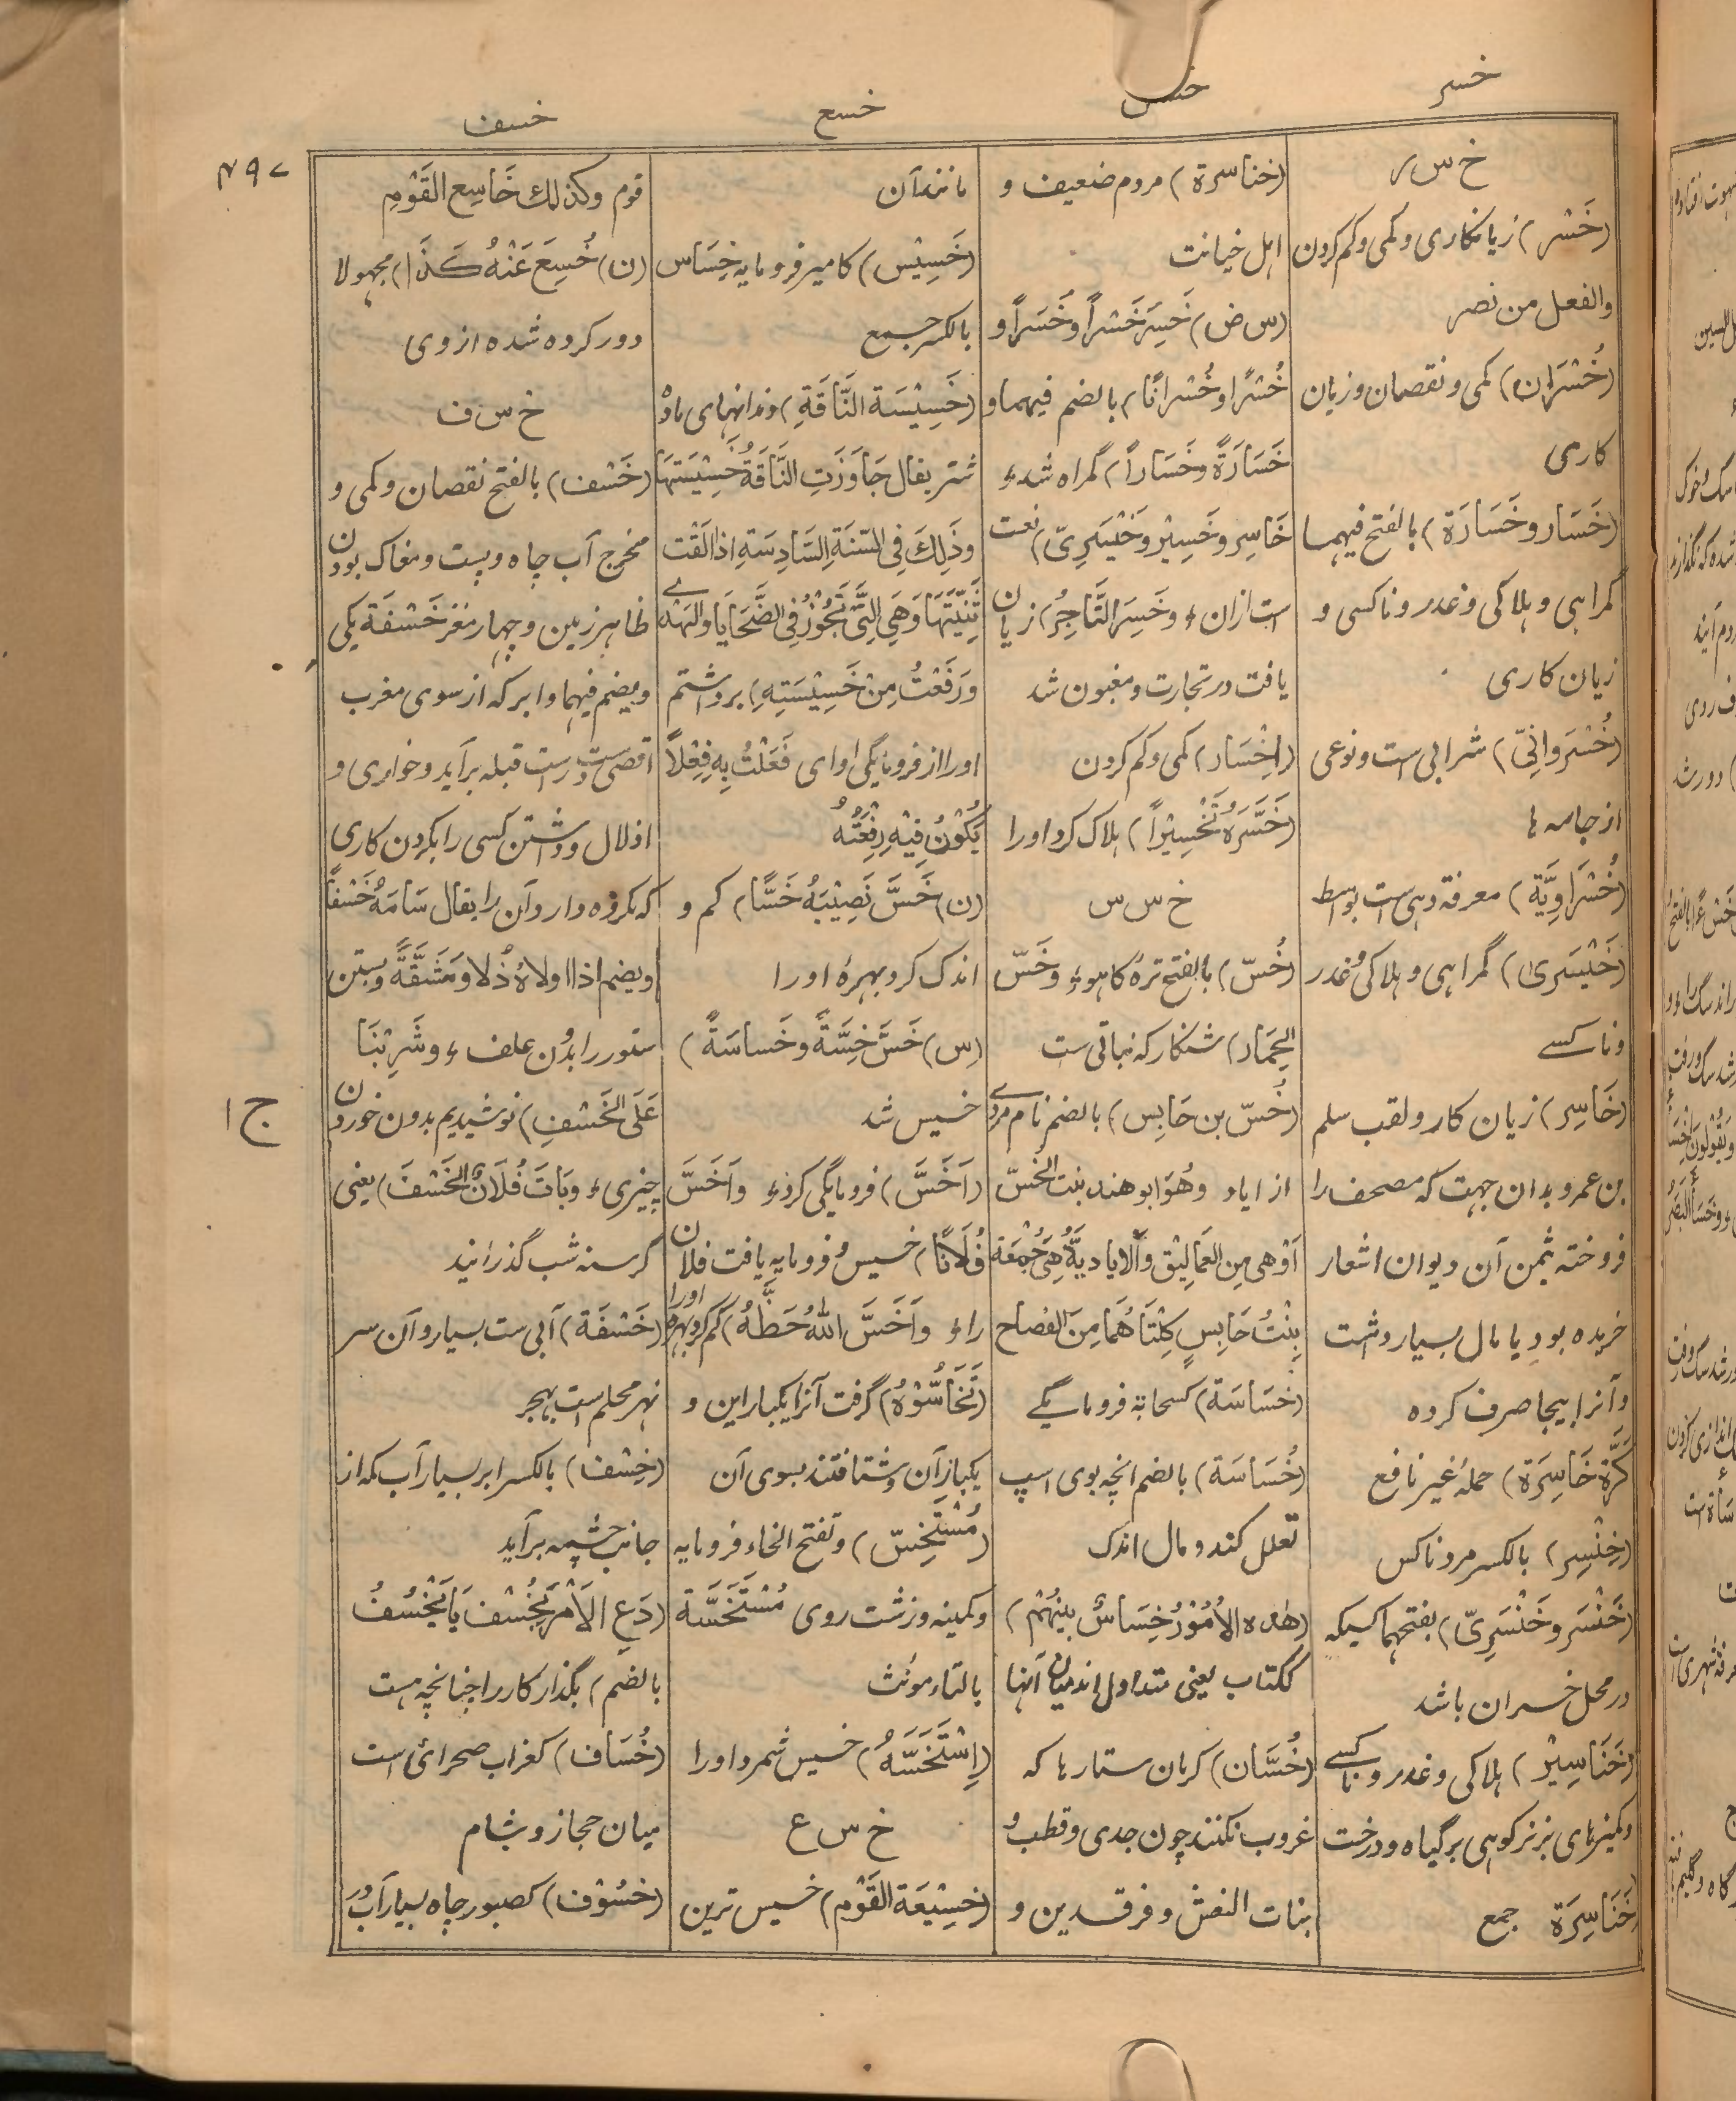 خسر
خسس
خسع
خسف
۴۹۷
خ س ر
(خَسْر) زیانکاری و کمی و کم کردن
والفعل من نصر
(خُسْرَان) کمی و نقصان و زیان
کاری
(خَسَار و خَسَارَة) بالفتح فیهما
گمراهی و هلاکی و غدر و ناکسی و
زیان کاری
(خُسْرَوانِیّ) شرابی است و نوعی
از جامه ها
(خُسْرَاوِیَّة) معرفة دهی است بواسط
(خَیْسَرَی) گمراهی و هلاکی و غدر
و ناکسے
(خَاسِر) زیان کار و لقب سلم
بن عمرو بدان جهت که مصحف را
فروخته بثمن آن دیوان اشعار
خریده بود یا مال بسیار داشت
و آنرا بیجا صرف کرده
(کَرَّة خَاسِرَة) حملهٔ غیر نافع
(خِنْسِر) بالکسر مرد ناکس
(خَنْسَر و خَنْسَرِیّ) بفتحهما کسیکه
در محل خسران باشد
(خَنَاسِیْر) هلاکی و غدر و ناکسے
و کمیزهای بز نر کوهی بر گیاه و درخت
خَنَاسِرَة جمع
(خناسرة) مردم ضعیف و
اهل خیانت
(س ض) خَسِرَ خَسْراً و خَسَراً و
خُسْرًا و خُسْرَانًا) بالضم فیهما و
خَسَارَةً و خَسَاراً) گمراه شدء
خَاسِر و خَسِیْر و خَیْسَرِیّ) نعت
است ازان ء و خَسِرَ التَّاجِرُ) زیان
یافت در تجارت و مغبون شد
(اِخْسَار) کمی و کم کردن
(خَسَّرَهُ تَخْسِیْراً) هلاک کرد او را
خ س س
(خَسّ) بالفتح ترهٔ کاهوء و خَسّ
الحِمَار) شنکار که نباتی ست
(خُسّ بن حَابِس) بالضم نام مردے
از ایاد وهُوَ ابو هند بنت الخُسّ
اَوْهی مِن العَمَالِیْق وَالایادیّةُ هِیَ جُمْعَة
بِنْتُ حَابِسٍ کِلْتَاهُمَا مِنَ الفِصاح
(خَسَاسَة) کسحابة فرومایگے
(خُسَاسَة) بالضم انچه بوی اسپ
تعلل کند و مال اندک
(هٰذه الاُمُوْرُ خِسَاسٌ بینَهُمْ)
ککتاب یعنی متداول اند میان آنها
(خُسَّان) کرمان ستارها که
غروب نکنند چون جدی و قطب و
بنات النعش و فرقدین و
مانند آن
(خَسِیْس) کامیر فرومایه خِسَاس
بالکسر جمع
(خَسِیْسَة النَّاقَةِ) دندانهای ماده
شتر یقال جَاوَزَتِ النَّاقَةُ خَسِیْسَتَهَا
وذٰلِكَ فِی السَّنَةِ السَّادِسَةِ اِذا اَلْقَت
ثَنِیَّتَهَا وَهِیَ الَّتِی تَجُوْزُ فِی الضَّحَایَا والهَدْیِ
ورَفَعْتُ مِنْ خَسِیْسَتِهِ) برداشتم
او را از فرومایگی او ای فَعَلْتُ بِهِ فِعْلاً
یَکُوْنُ فِیْهِ رِفْعَتُهُ
(ن) خَسَّ نَصِیْبَهُ خَسًّا) کم و
اندک کرد بهرهٔ او را
(س) خَسَّ خِسَّةً و خَساسَةً)
خسیس شد
(اَخَسَّ) فرومایگی کردء واَخَسَّ
فُلَانًا) خسیس و فرومایه یافت فلان
راء واَخَسَّ اللّٰهُ حَظَّهُ) کم کرد بهرهٔ او را
(تَخَاسُّوْهُ) گرفت آنرا یکبار این و
یکبار آن و شتافتند بسوی آن
(مُسْتَخِسّ) و تفتح الخاء فرومایه
و کمینه و زشت روی مُسْتَخَسَّة
بالتاء مؤنث
(اِسْتَخَسَّهُ) خسیس شمرد او را
خ س ع
(خسِیْعَة القَوْم) خسیس ترین
قوم وکذلك خَاسِع القَوْمِ
(ن) خُسِعَ عَنْهُ کَذَا) مجهولا
دور کرده شده از وی
خ س ف
(خَسْف) بالفتح نقصان و کمی و
مخرج آب چاه و پست و مغاک بودن
ظاهر زمین و چهار مغز خَسْفَة یکی
و یضم فیهما و ابر که از سوی مغرب
اقصی ست راست قبله برآید و خواری و
اذلال و داشتن کسی را بکردن کاری
که مکروه دارد آن را یقال سَامَهُ خَسْفاً
ویضم اذا اولاهُ ذُلا ومَشَقَّةً و بستن
ستور را بدون علف ء وشَرِبْنَا
عَلَی الخَسْفِ) نوشیدیم بدون خوردن
چیزیء وبَاتَ فُلَانٌ الخَسْفَ) یعنی
گرسنه شب گذرانید
(خَسْفَة) آبی ست بسیار و آن سر
نهر محلم است بهجر
(خِسْف) بالکسر ابر بسیار آب که از
جانب چشمه برآید
(دَعِ الاَمْرَ یَخْسُف یَا یَخْسُفُ
بالضم) بگذار کار را چنانچه هست
(خُسَاف) کغراب صحرائی است
میان حجاز و شام
(خسُوْف) کصبور چاه بسیار آب و
ج ا